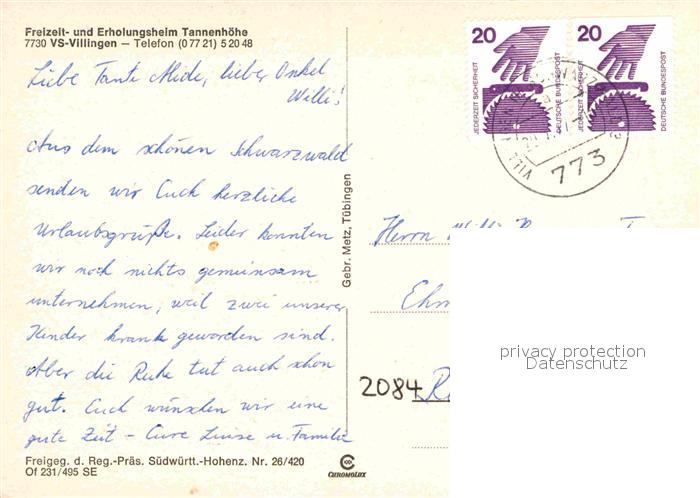 Freizeit- und Erholungsheim Tannenhöhe
7730 VS-Villingen – Telefon (0 77 21) 5 20 48
Liebe Tante Mide, lieber Onkel
Willi!
Aus dem schönen Schwarzwald
senden wir Euch herzliche
Urlaubsgrüße. Leider konnten
wir noch nichts gemeinsam
unternehmen, weil zwei unserer
Kinder krank geworden sind.
Aber die Ruhe tut auch schon
gut. Euch wünschen wir eine
gute Zeit – Eure Luise u. Familie
Freigeg. d. Reg.-Präs. Südwürtt.-Hohenz. Nr. 26/420
Of 231/495 SE
Gebr. Metz, Tübingen
CHROMOLUX
20
JEDERZEIT SICHERHEIT
DEUTSCHE BUNDESPOST
20
JEDERZEIT SICHERHEIT
DEUTSCHE BUNDESPOST
773
Herrn Willi
2084
privacy protection
Datenschutz